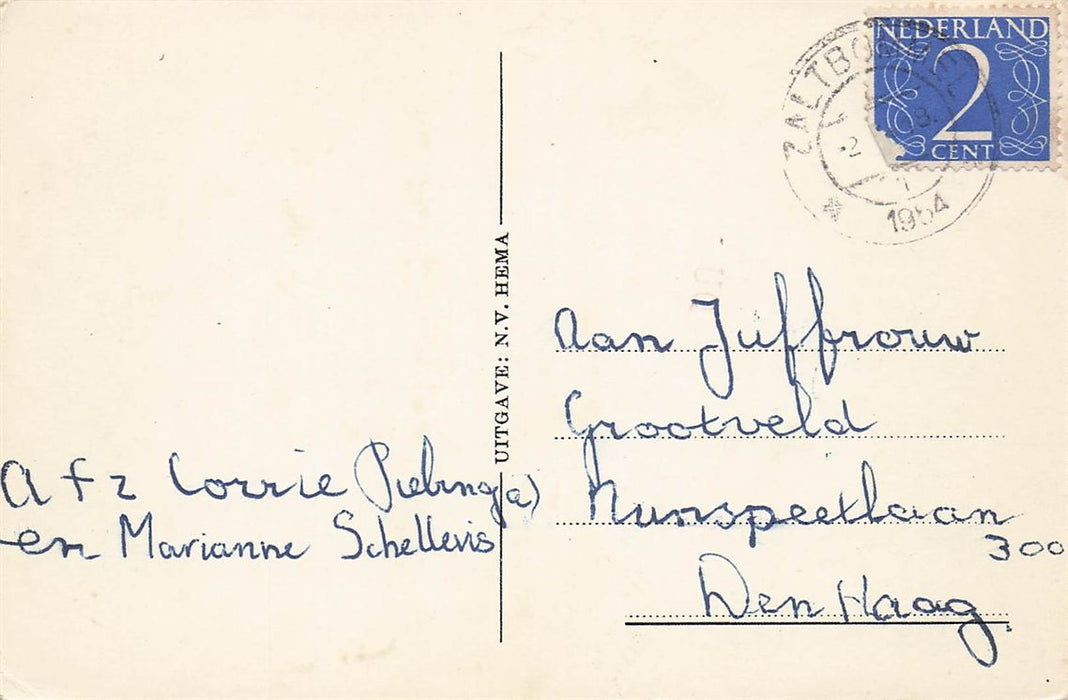 NEDERLAND
2
CENT
ZALTBOMMEL
1954
UITGAVE: N.V. HEMA
Aan Juffrouw
Grootveld
Nunspeetlaan
300
Den Haag
Afz Corrie
en Marianne Schellevis